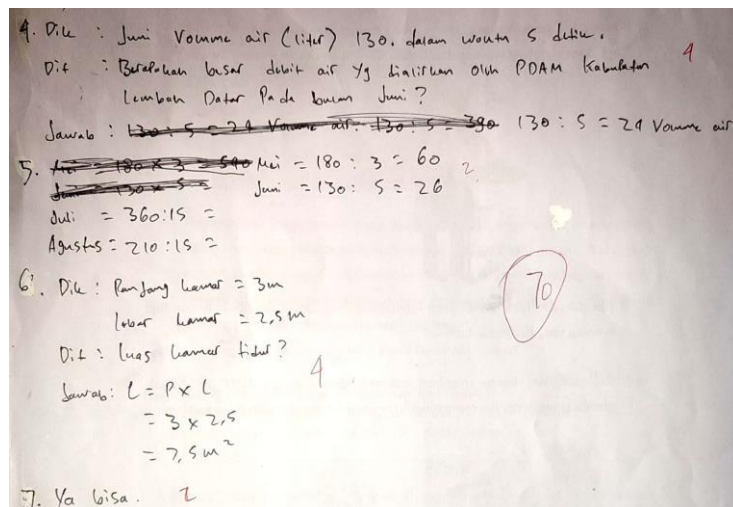 4. Dik : Juni Volume air (liter) 130. dalam waktu 5 detik. 4
Dit : Berapakah besar debit air yg dialirkan oleh PDAM Kabupaten
Lembah Datar Pada bulan Juni?
Jawab : 130 : 5 = 24 Volume air 130 : 5 = 390 130 : 5 = 24 Volume air
5. Mei = 180 x 3 = 540 Mei = 180 : 3 = 60 2
Juni = 130 x 5 = Juni = 130 : 5 = 26
Juli = 360 : 15 =
Agustus = 210 : 15 =
6. Dik : Panjang kamar = 3m 70
Lebar kamar = 2,5m
Dit : Luas kamar tidur?
Jawab : L = P x L 4
= 3 x 2,5
= 7,5 m²
7. Ya bisa. 2